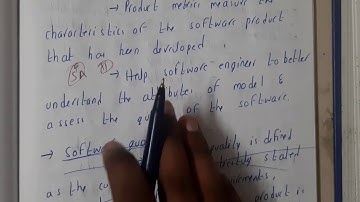 → Product metrics measure the
characteristics of the software product
that has been developed.
→ Help software engineer to better
understand the attributes of model &
assess the of the software.
→ Software is defined
stated
as the
product is